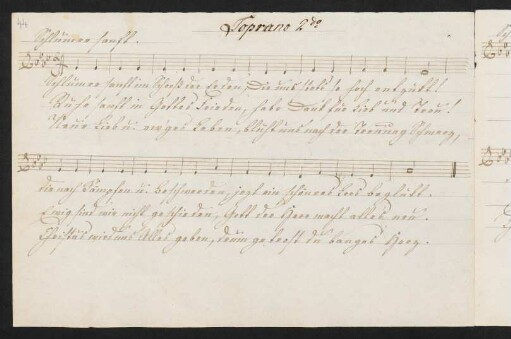 44
Soprano 2do
Schlumre sanft.
Schlumre sanft im Schooß der Erden, Die uns stets so hoch entzückt!
Ruhe sanft in Gottes Frieden, habe Dank für Lieb' und Treu!
Neue Lieb u. ew'ges Leben, blüht uns nach der Trennung Schmerz,
die nach Kämpfen u. Beschwerden, jetzt ein schönres Loos beglückt.
Ewig sind wir nicht geschieden, Gott der Herr macht alles neu.
Christus wird uns Alles geben, drum getrost du banges Herz.